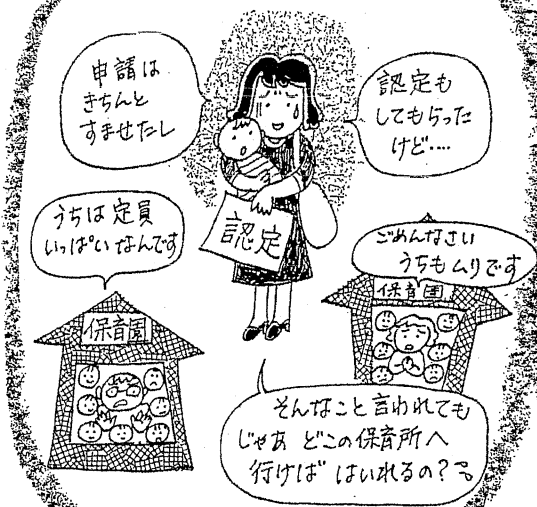 申請は
きちんと
すませたし
認定も
してもらった
けど‥‥
認定
うちは定員
いっぱいなんです
保育園
ごめんなさい
うちもムリです
保育園
そんなこと言われても
じゃあ どこの保育所へ
行けば はいれるの?